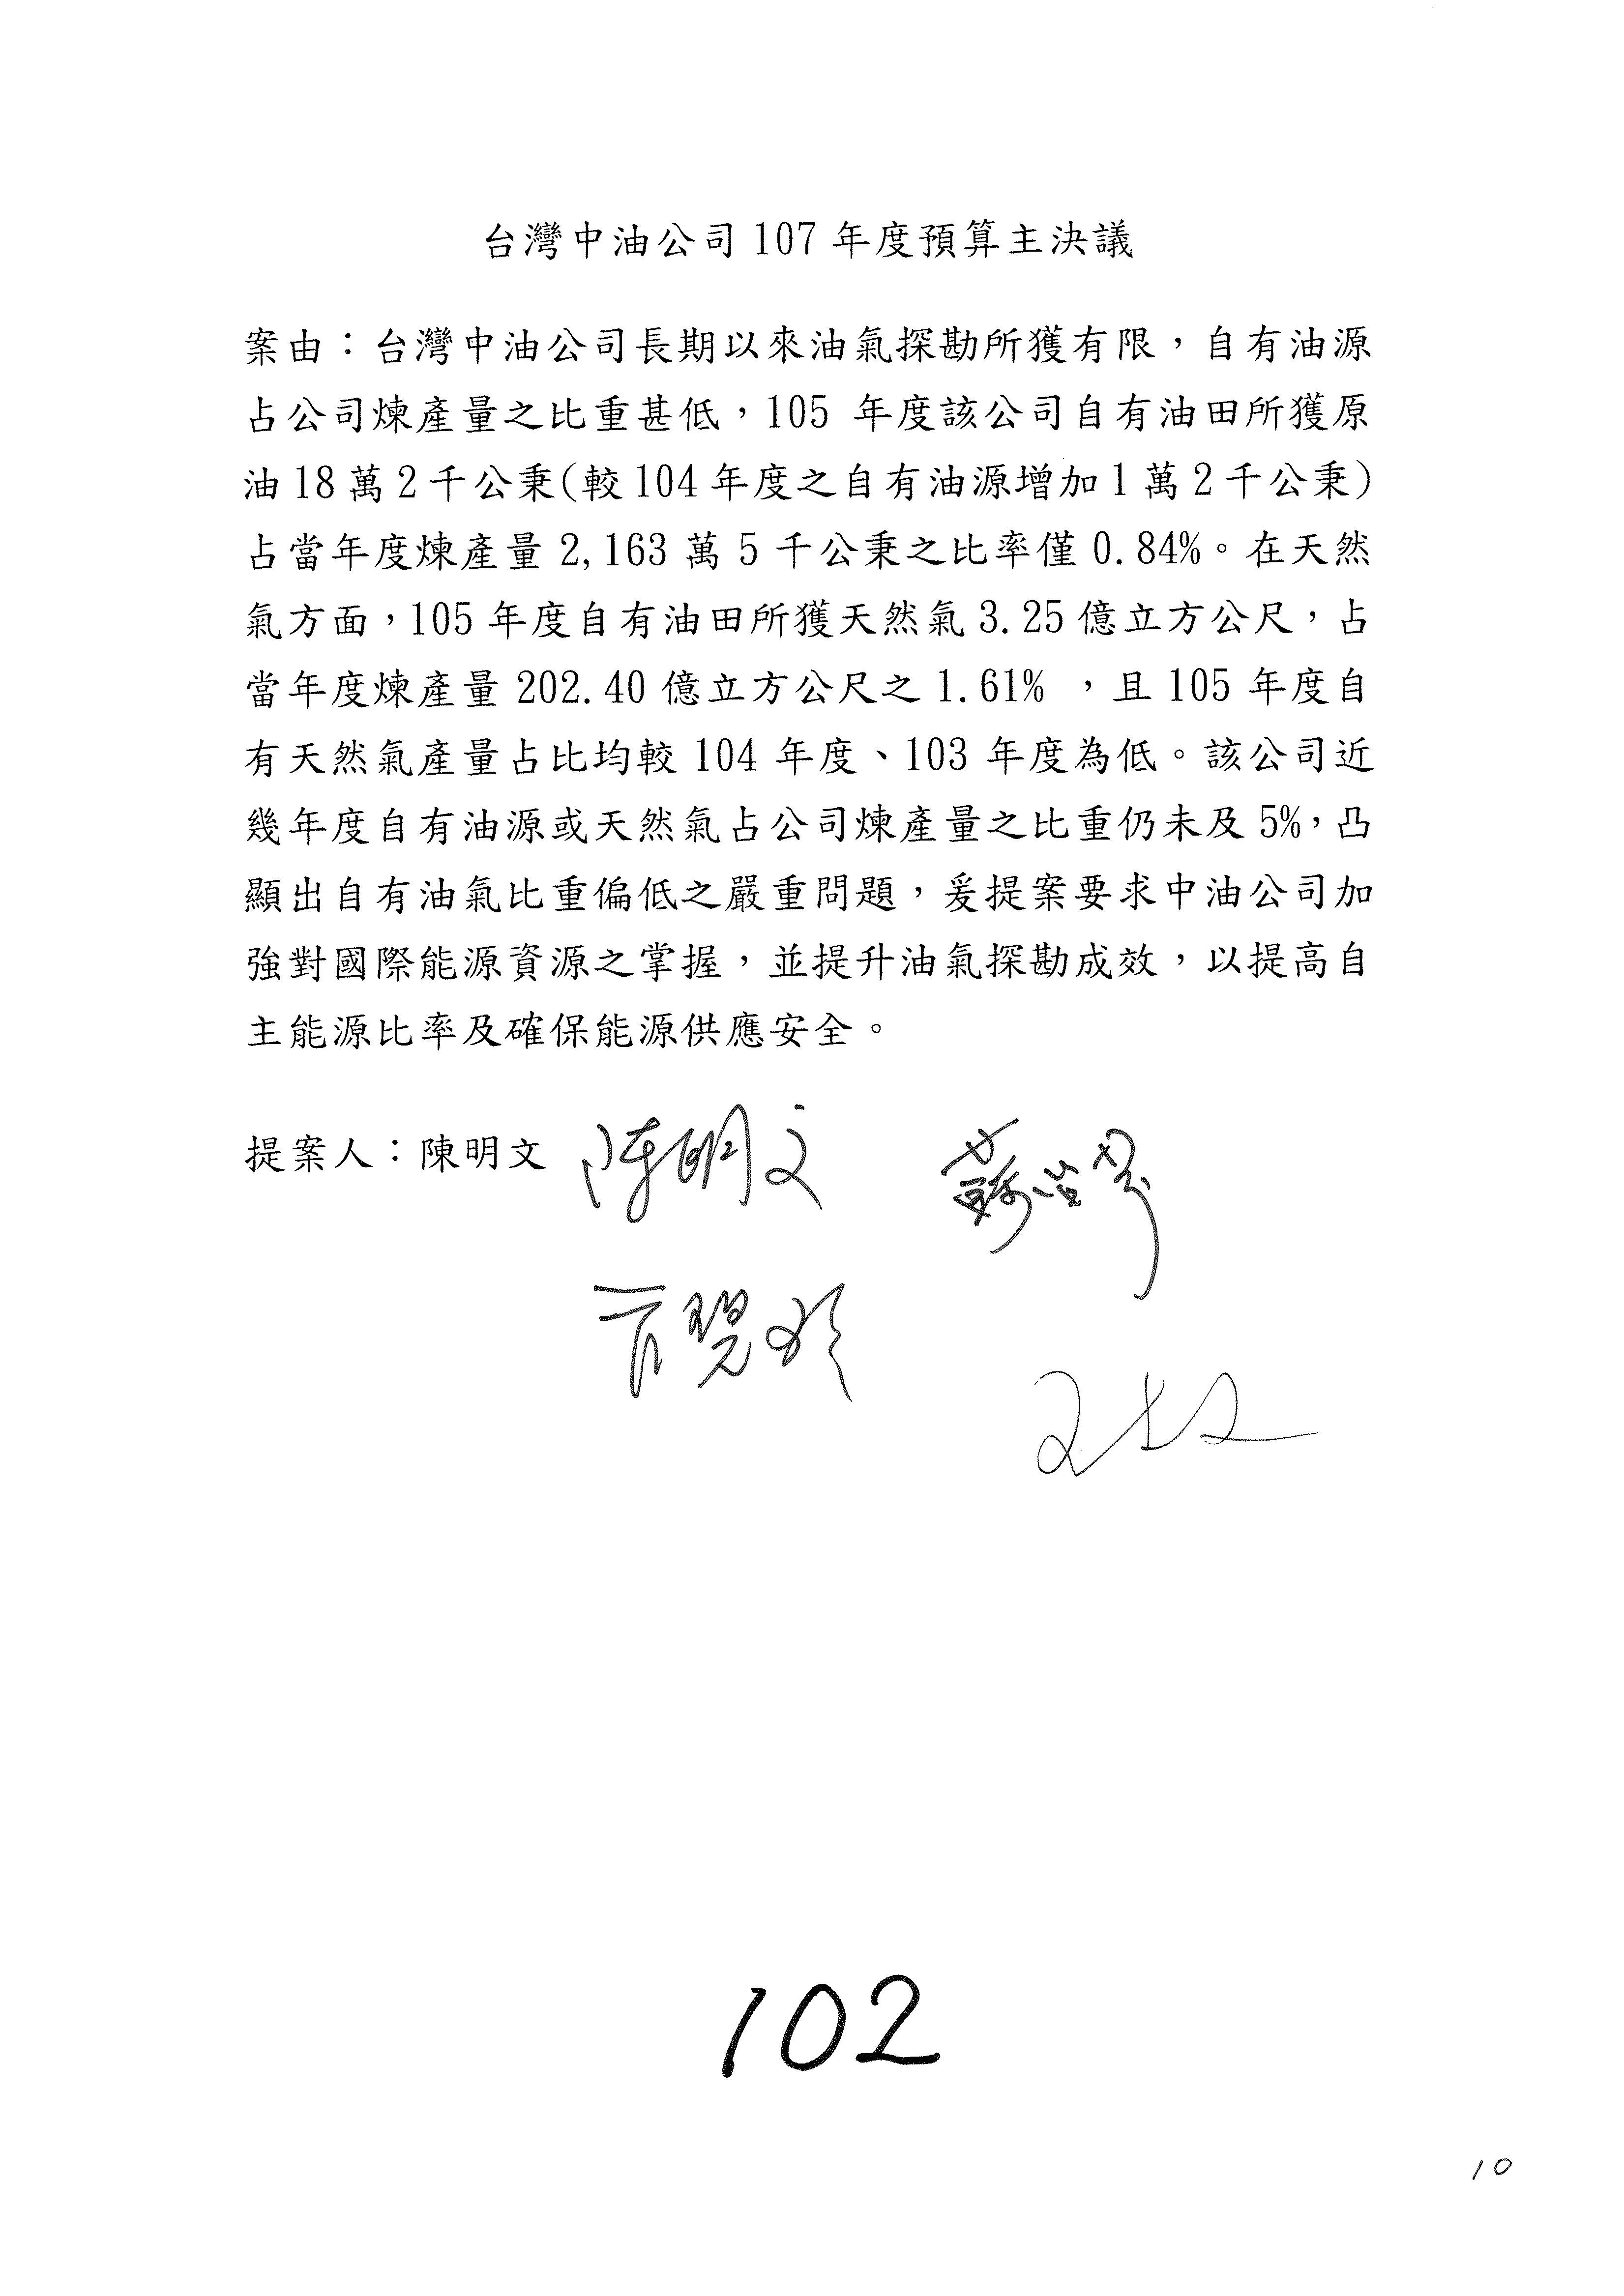 台灣中油公司 107 年度預算主決議
案由：台灣中油公司長期以來油氣探勘所獲有限，自有油源
占公司煉產量之比重甚低，105 年度該公司自有油田所獲原
油 18 萬 2 千公秉(較 104 年度之自有油源增加 1 萬 2 千公秉)
占當年度煉產量 2,163 萬 5 千公秉之比率僅 0.84%。在天然
氣方面，105 年度自有油田所獲天然氣 3.25 億立方公尺，占
當年度煉產量 202.40 億立方公尺之 1.61% ，且 105 年度自
有天然氣產量占比均較 104 年度、103 年度為低。該公司近
幾年度自有油源或天然氣占公司煉產量之比重仍未及 5%，凸
顯出自有油氣比重偏低之嚴重問題，爰提案要求中油公司加
強對國際能源資源之掌握，並提升油氣探勘成效，以提高自
主能源比率及確保能源供應安全。
提案人：陳明文 陳明文
蘇治芬
102
10